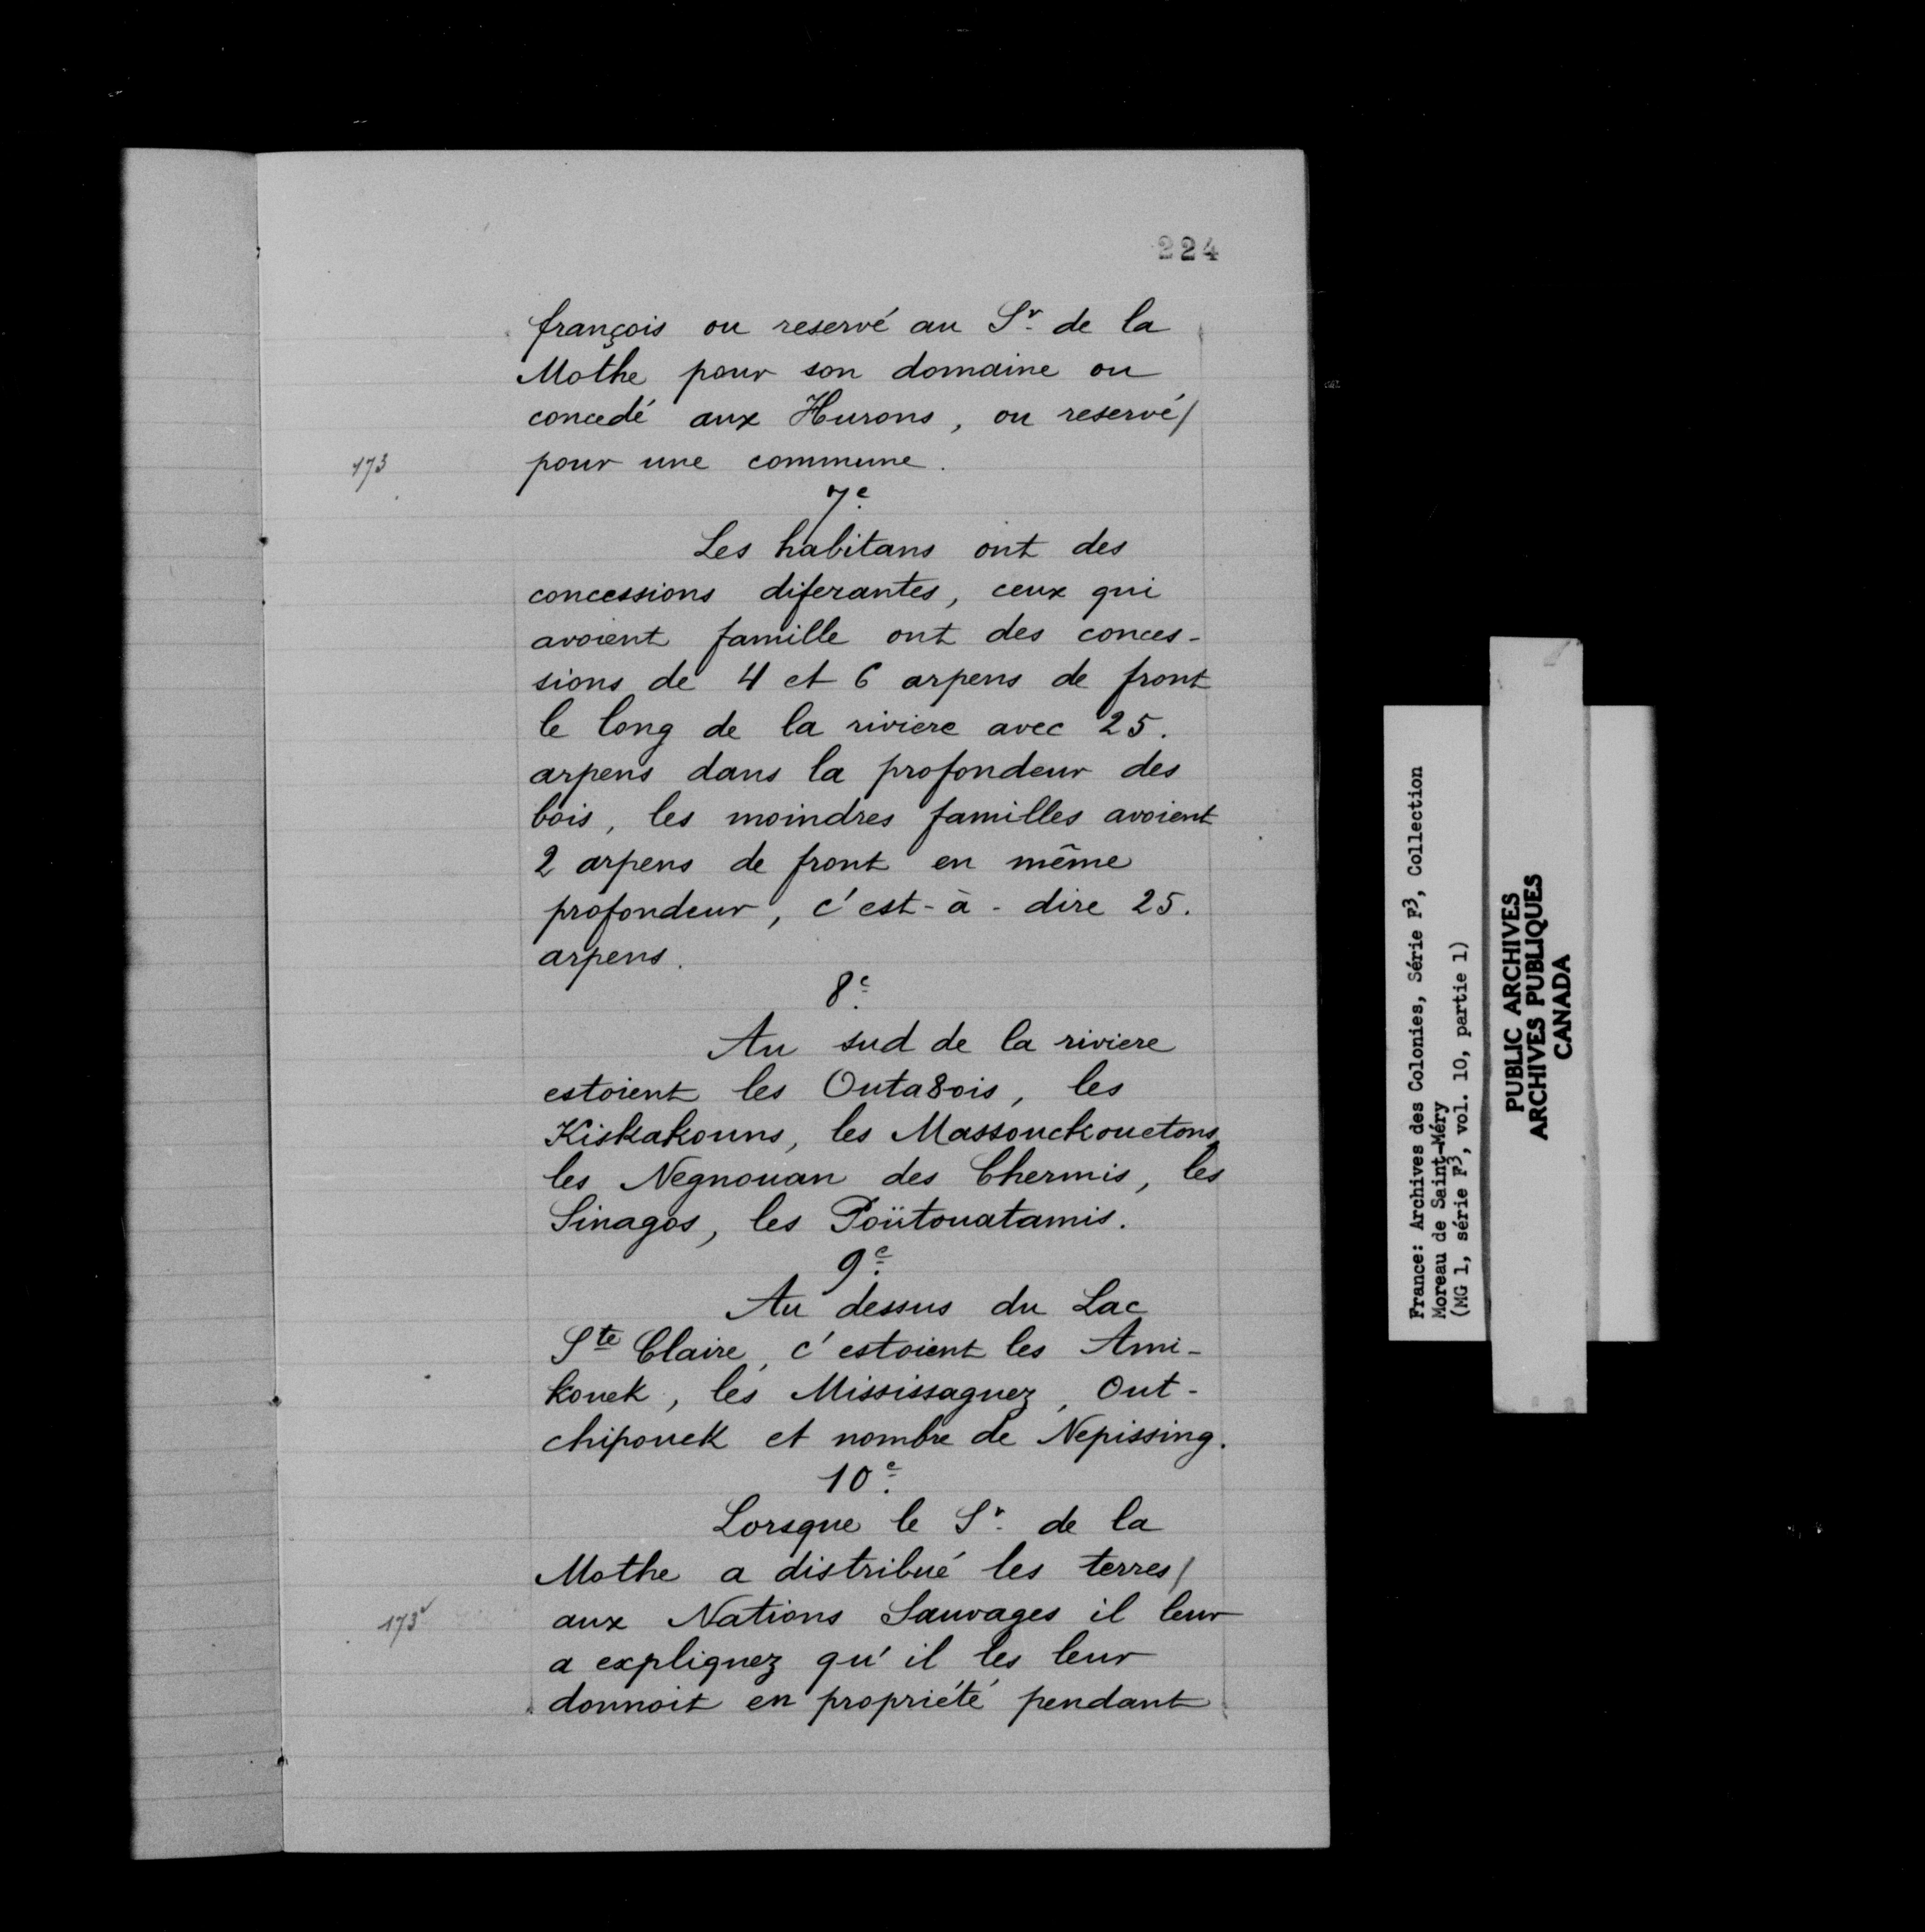 224
françois ou reservé au Sr. de la
Mothe pour son domaine ou
concedé aux Hurons, ou reservé/
173
pour une commune.
7e
Les habitans ont des
concessions diferantes, ceux qui
avoient famille ont des conces-
sions de 4 et 6 arpens de front
le long de la riviere avec 25.
arpens dans la profondeur des
bois, les moindres familles avoient
2 arpens de front en même
profondeur, c'est-à-dire 25.
arpens.
8e
Au sud de la riviere
estoient les Outa8ois, les
Kiskakouns, les Massouckouetons,
les Negnouan des Chermis, les
Sinagos, les Poütouatamis.
9e
Au dessus du Lac
Ste Claire, c'estoient les Ami-
kouek, les Mississaguez, Out-
chipouek et nombre de Nepissing.
10e
Lorsque le Sr. de la
Mothe a distribué les terres/
173v
aux Nations Sauvages il leur
a expliquez qu'il les leur
donnoit en propriété pendant
France: Archives des Colonies, Série F3, Collection
Moreau de Saint-Méry
(MG 1, série F3, vol. 10, partie 1)
PUBLIC ARCHIVES
ARCHIVES PUBLIQUES
CANADA